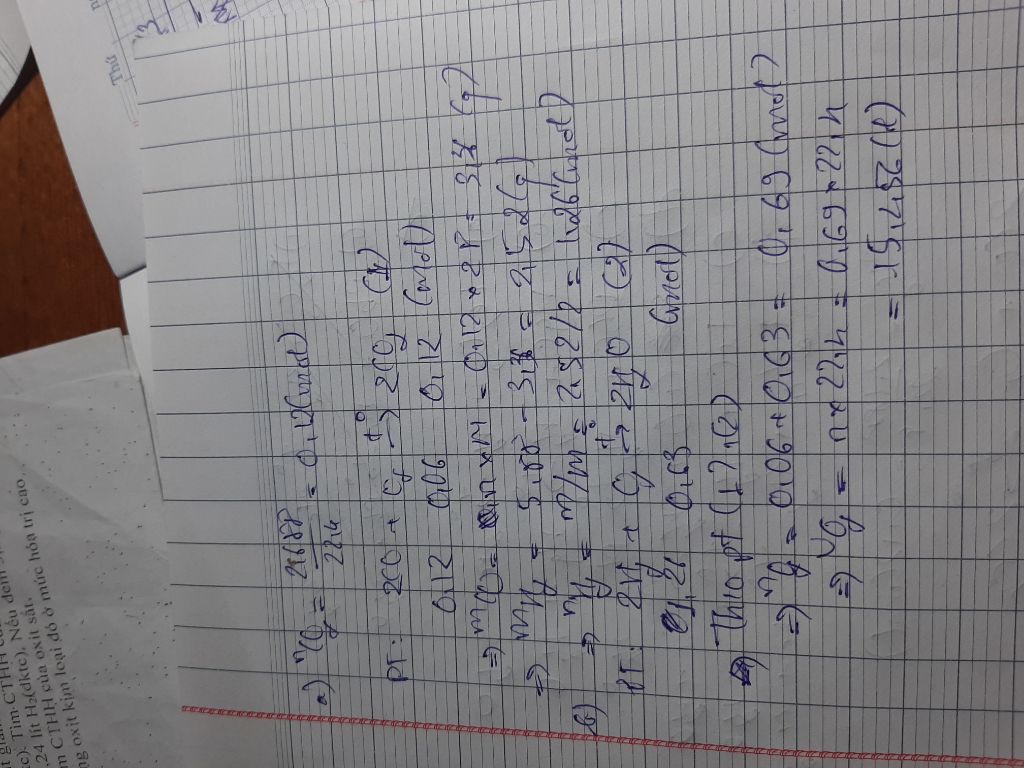 a) nCO2 = 2,688 / 22,4 = 0,12 (mol)
PT: 2CO + O2 t°→ 2CO2 (1)
0,12 0,06 0,12 (mol)
=> mCO = n x M = 0,12 x 28 = 3,36 (g)
=> mH2 = 5,88 - 3,36 = 2,52 (g)
b) => nH2 = m/M = 2,52/2 = 1,26 (mol)
PT: 2H2 + O2 t°→ 2H2O (2)
1,26 0,63 (mol)
Theo pt (1), (2)
=> nO2 = 0,06 + 0,63 = 0,69 (mol)
=> VO2 = n x 22,4 = 0,69 x 22,4
= 15,456 (l)
CTHH của
c). Tìm CTHH
). Nếu đem
,24 lít H2(đktc)
m CTHH của oxit sắt.
ng oxit kim loại đó ở mức hóa trị cao